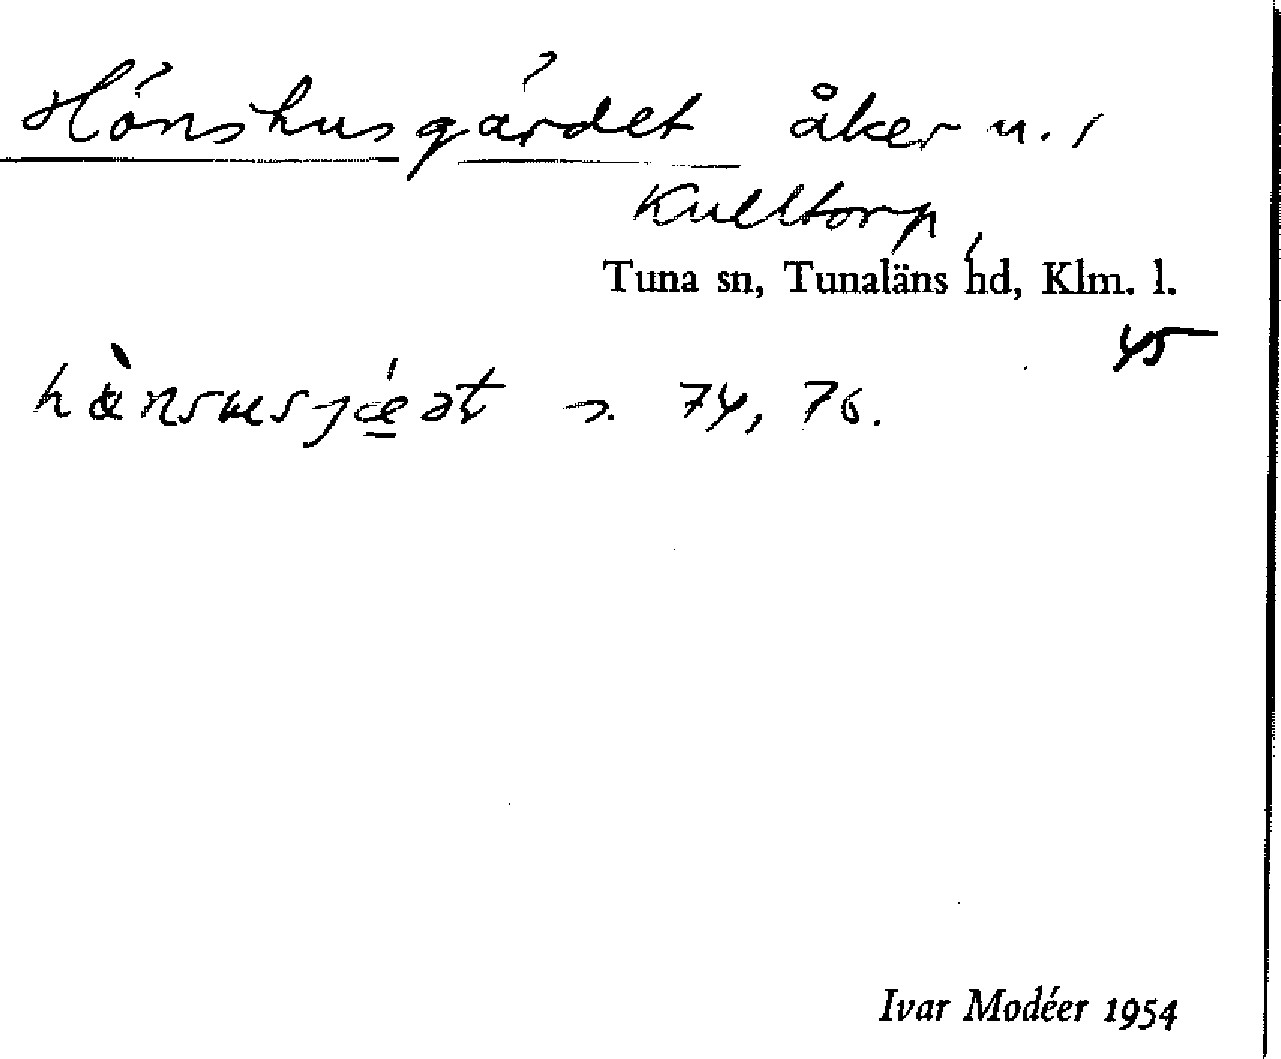 Hönshusgärdet åker u. 1
Kulltorp,
Tuna sn, Tunaläns hd, Klm. l.
45
74, 76.
Ivar Modéer 1954